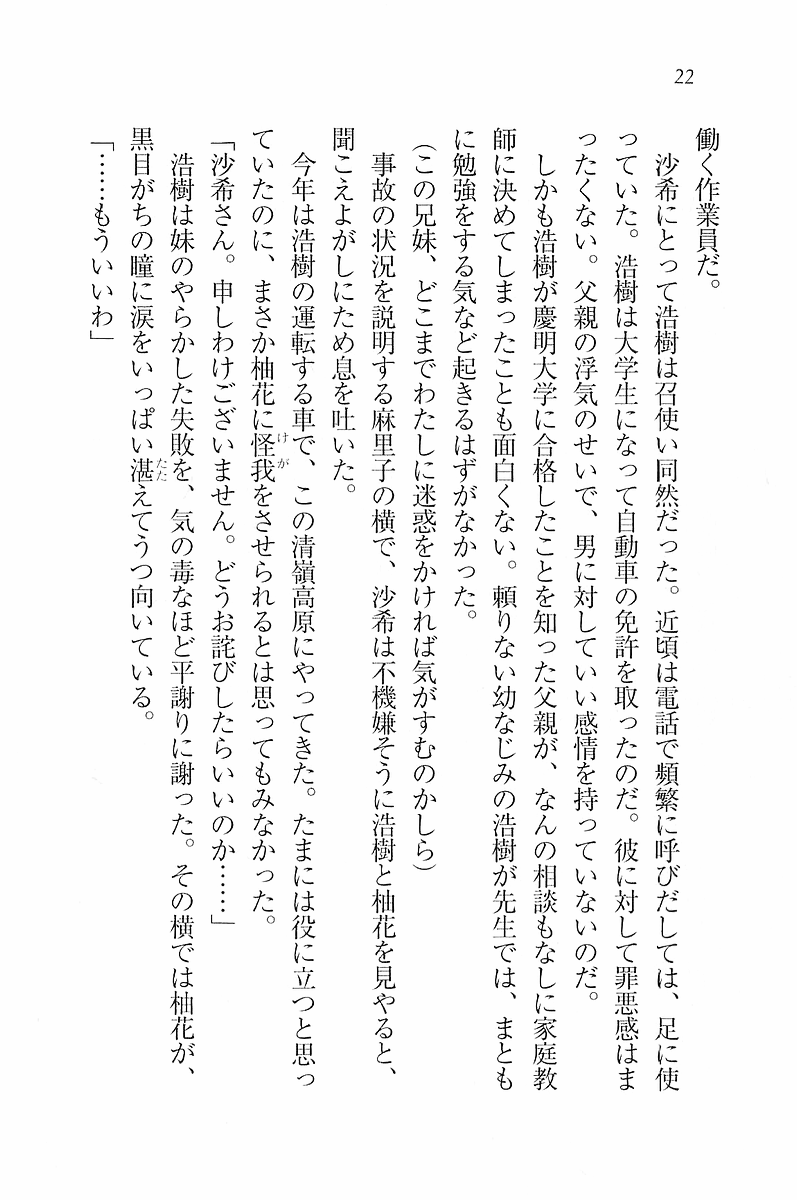 22
働く作業員だ。
　沙希にとって浩樹は召使い同然だった。近頃は電話で頻繁に呼びだしては、足に使
っていた。浩樹は大学生になって自動車の免許を取ったのだ。彼に対して罪悪感はま
ったくない。父親の浮気のせいで、男に対していい感情を持っていないのだ。
　しかも浩樹が慶明大学に合格したことを知った父親が、なんの相談もなしに家庭教
師に決めてしまったことも面白くない。頼りない幼なじみの浩樹が先生では、まとも
に勉強をする気など起きるはずがなかった。
（この兄妹、どこまでわたしに迷惑をかければ気がすむのかしら）
　事故の状況を説明する麻里子の横で、沙希は不機嫌そうに浩樹と柚花を見やると、
聞こえよがしにため息を吐いた。
　今年は浩樹の運転する車で、この清嶺高原にやってきた。たまには役に立つと思っ
ていたのに、まさか柚花に怪我をさせられるとは思ってもみなかった。
「沙希さん。申しわけございません。どうお詫びしたらいいのか……」
　浩樹は妹のやらかした失敗を、気の毒なほど平謝りに謝った。その横では柚花が、
黒目がちの瞳に涙をいっぱい湛えてうつ向いている。
「……もういいわ」